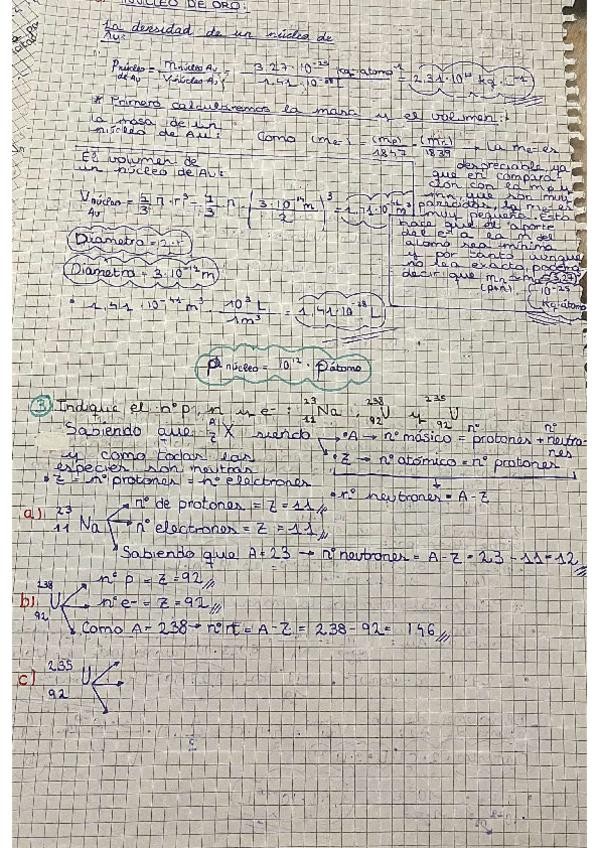 NÚCLEO DE ORO:
La densidad de un núcleo de
Au:
ρnúcleo de Au = mnúcleo Au / Vnúcleo Au = 3,27·10⁻²⁵ kg·átomo⁻¹ / 1,41·10 = 2,31·10 kg·
* Primero calcularemos la masa y el volumen:
La masa de un
núcleo de Au:
Como (me-) = (mp)/1847 = (mn)/1839 → La me- es
despreciable, ya
que en compara
ción con la mp y
mn, que son muy
parecidas, la me- es
muy pequeña. Esta
hace que el aporte
del e- a la m del
átomo sea mínima
y por tanto aunque
no sea exacta, podemos
decir que
(p+n)
3,27·10⁻²⁵
kg·átomo
El volumen de
un núcleo de Au:
Vnúcleo Au = 4/3 π·r³ = 4/3 π·(3·10⁻¹⁴m / 2)³ = 1,41·10 m³
Diametro = 2·r
Diametro = 3·10⁻¹⁴m
· 1,41·10⁻⁴¹m³ · 10³L / 1m³ = 1,41·10⁻³⁸ L
ρnúcleo = 10¹² · ρátomo
③ Indique el nº p, n y e- : ²³₁₁Na, ²³⁸₉₂U y ²³⁵₉₂U
Sabiendo que ᴬ_Z X siendo → ·A → nº másico = nº protones + nº neutro-
nes
y como todas las → ·Z → nº atómico = nº protones
especies son neutras
· Z = nº protones = nº electrones
· nº neutrones = A-Z
a) ²³₁₁Na
nº de protones = Z = 11
nº electrones = Z = 11
Sabiendo que A = 23 → nº neutrones = A-Z = 23-11 = 12
b) ²³⁸₉₂U
nº p = Z = 92
nº e- = Z = 92
Como A = 238 → nº n = A-Z = 238-92 = 146
c) ²³⁵₉₂U